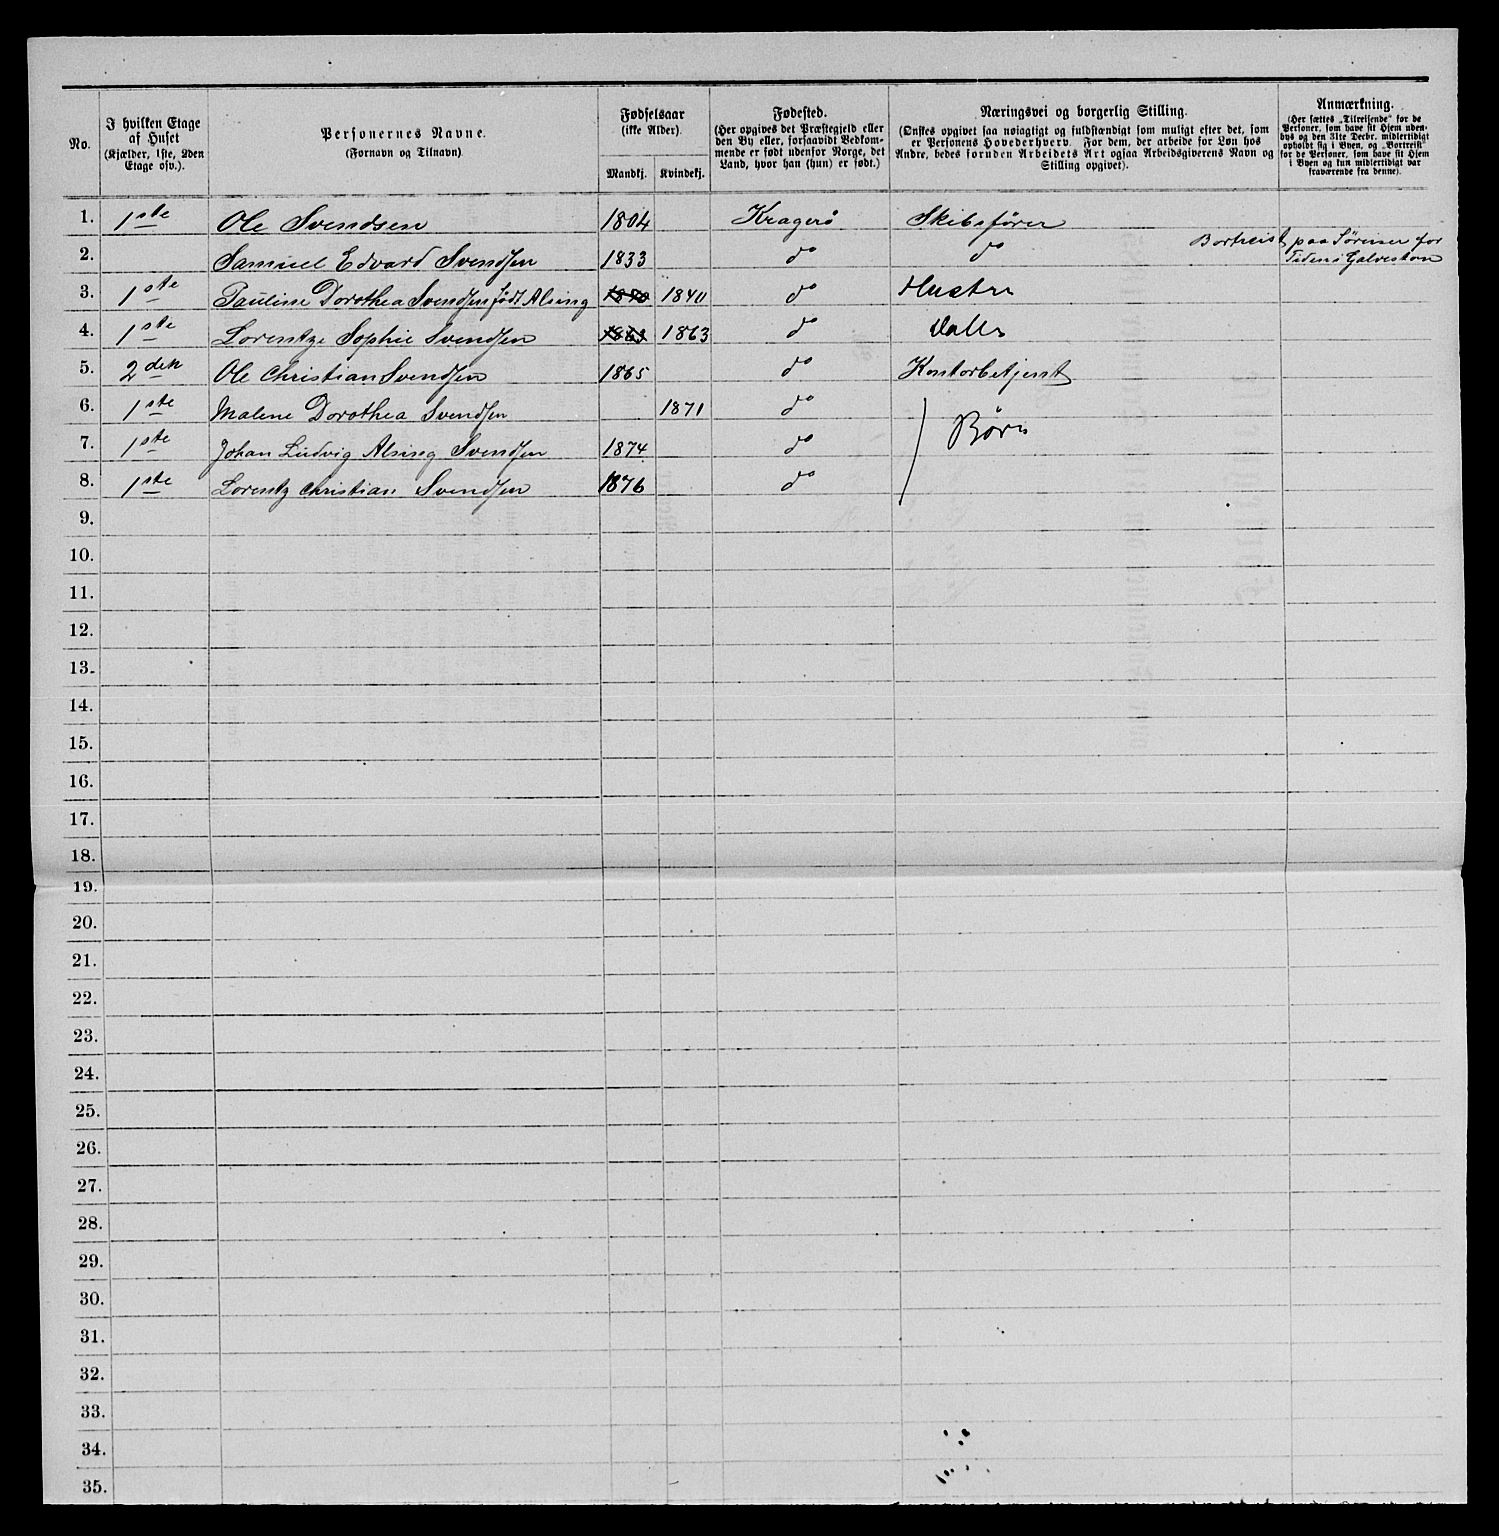 No.
I hvilken Etage
af Huset
(Kjælder, 1ste, 2den
Etage osv.).
Personernes Navne.
(Fornavn og Tilnavn)
Fødselsaar
(ikke Alder).
Mandkj. Kvindekj.
Fødested.
(Her opgives det Præstegjeld eller
den By eller, forsaavidt Vedkom-
mende er født udenfor Norge, det
Land, hvor han (hun) er født.)
Næringsvei og borgerlig Stilling.
(Ønskes opgivet saa nøiagtigt og fuldstændigt som muligt efter det, som
er Personens Hovederhverv. For dem, der arbeide for Løn hos
Andre, bedes foruden Arbeidets Art ogsaa Arbeidsgiverens Navn og
Stilling opgivet).
Anmærkning.
(Her sættes „Tilreisende" for de
Personer, som have sit Hjem uden-
bys og den 31te Decbr. midlertidigt
opholdt sig i Byen, og „Bortreist"
for de Personer, som have sit Hjem
i Byen og kun midlertidigt var
fraværende fra denne).
1. 1ste Ole Svendsen 1804 Kragerö Skibsförer
2. Samuel Edvard Svendsen 1833 do do Bortreist paa Söreiser for
Tiden i Galveston
3. 1ste Pauline Dorothea Svendsen født Alsing 1840 1840 do Hustru
4. 1ste Lorentze Sophie Svendsen 1863 1863 do
5. 2den Ole Christian Svendsen 1865 do Kontorbetjent
6. 1ste Malene Dorothea Svendsen 1871 do
7. 1ste Johan Ludvig Alsing Svendsen 1874 do Børn
8. 1ste Lorentz Christian Svendsen 1876 do
9.
10.
11.
12.
13.
14.
15.
16.
17.
18.
19.
20.
21.
22.
23.
24.
25.
26.
27.
28.
29.
30.
31.
32.
33.
34.
35.